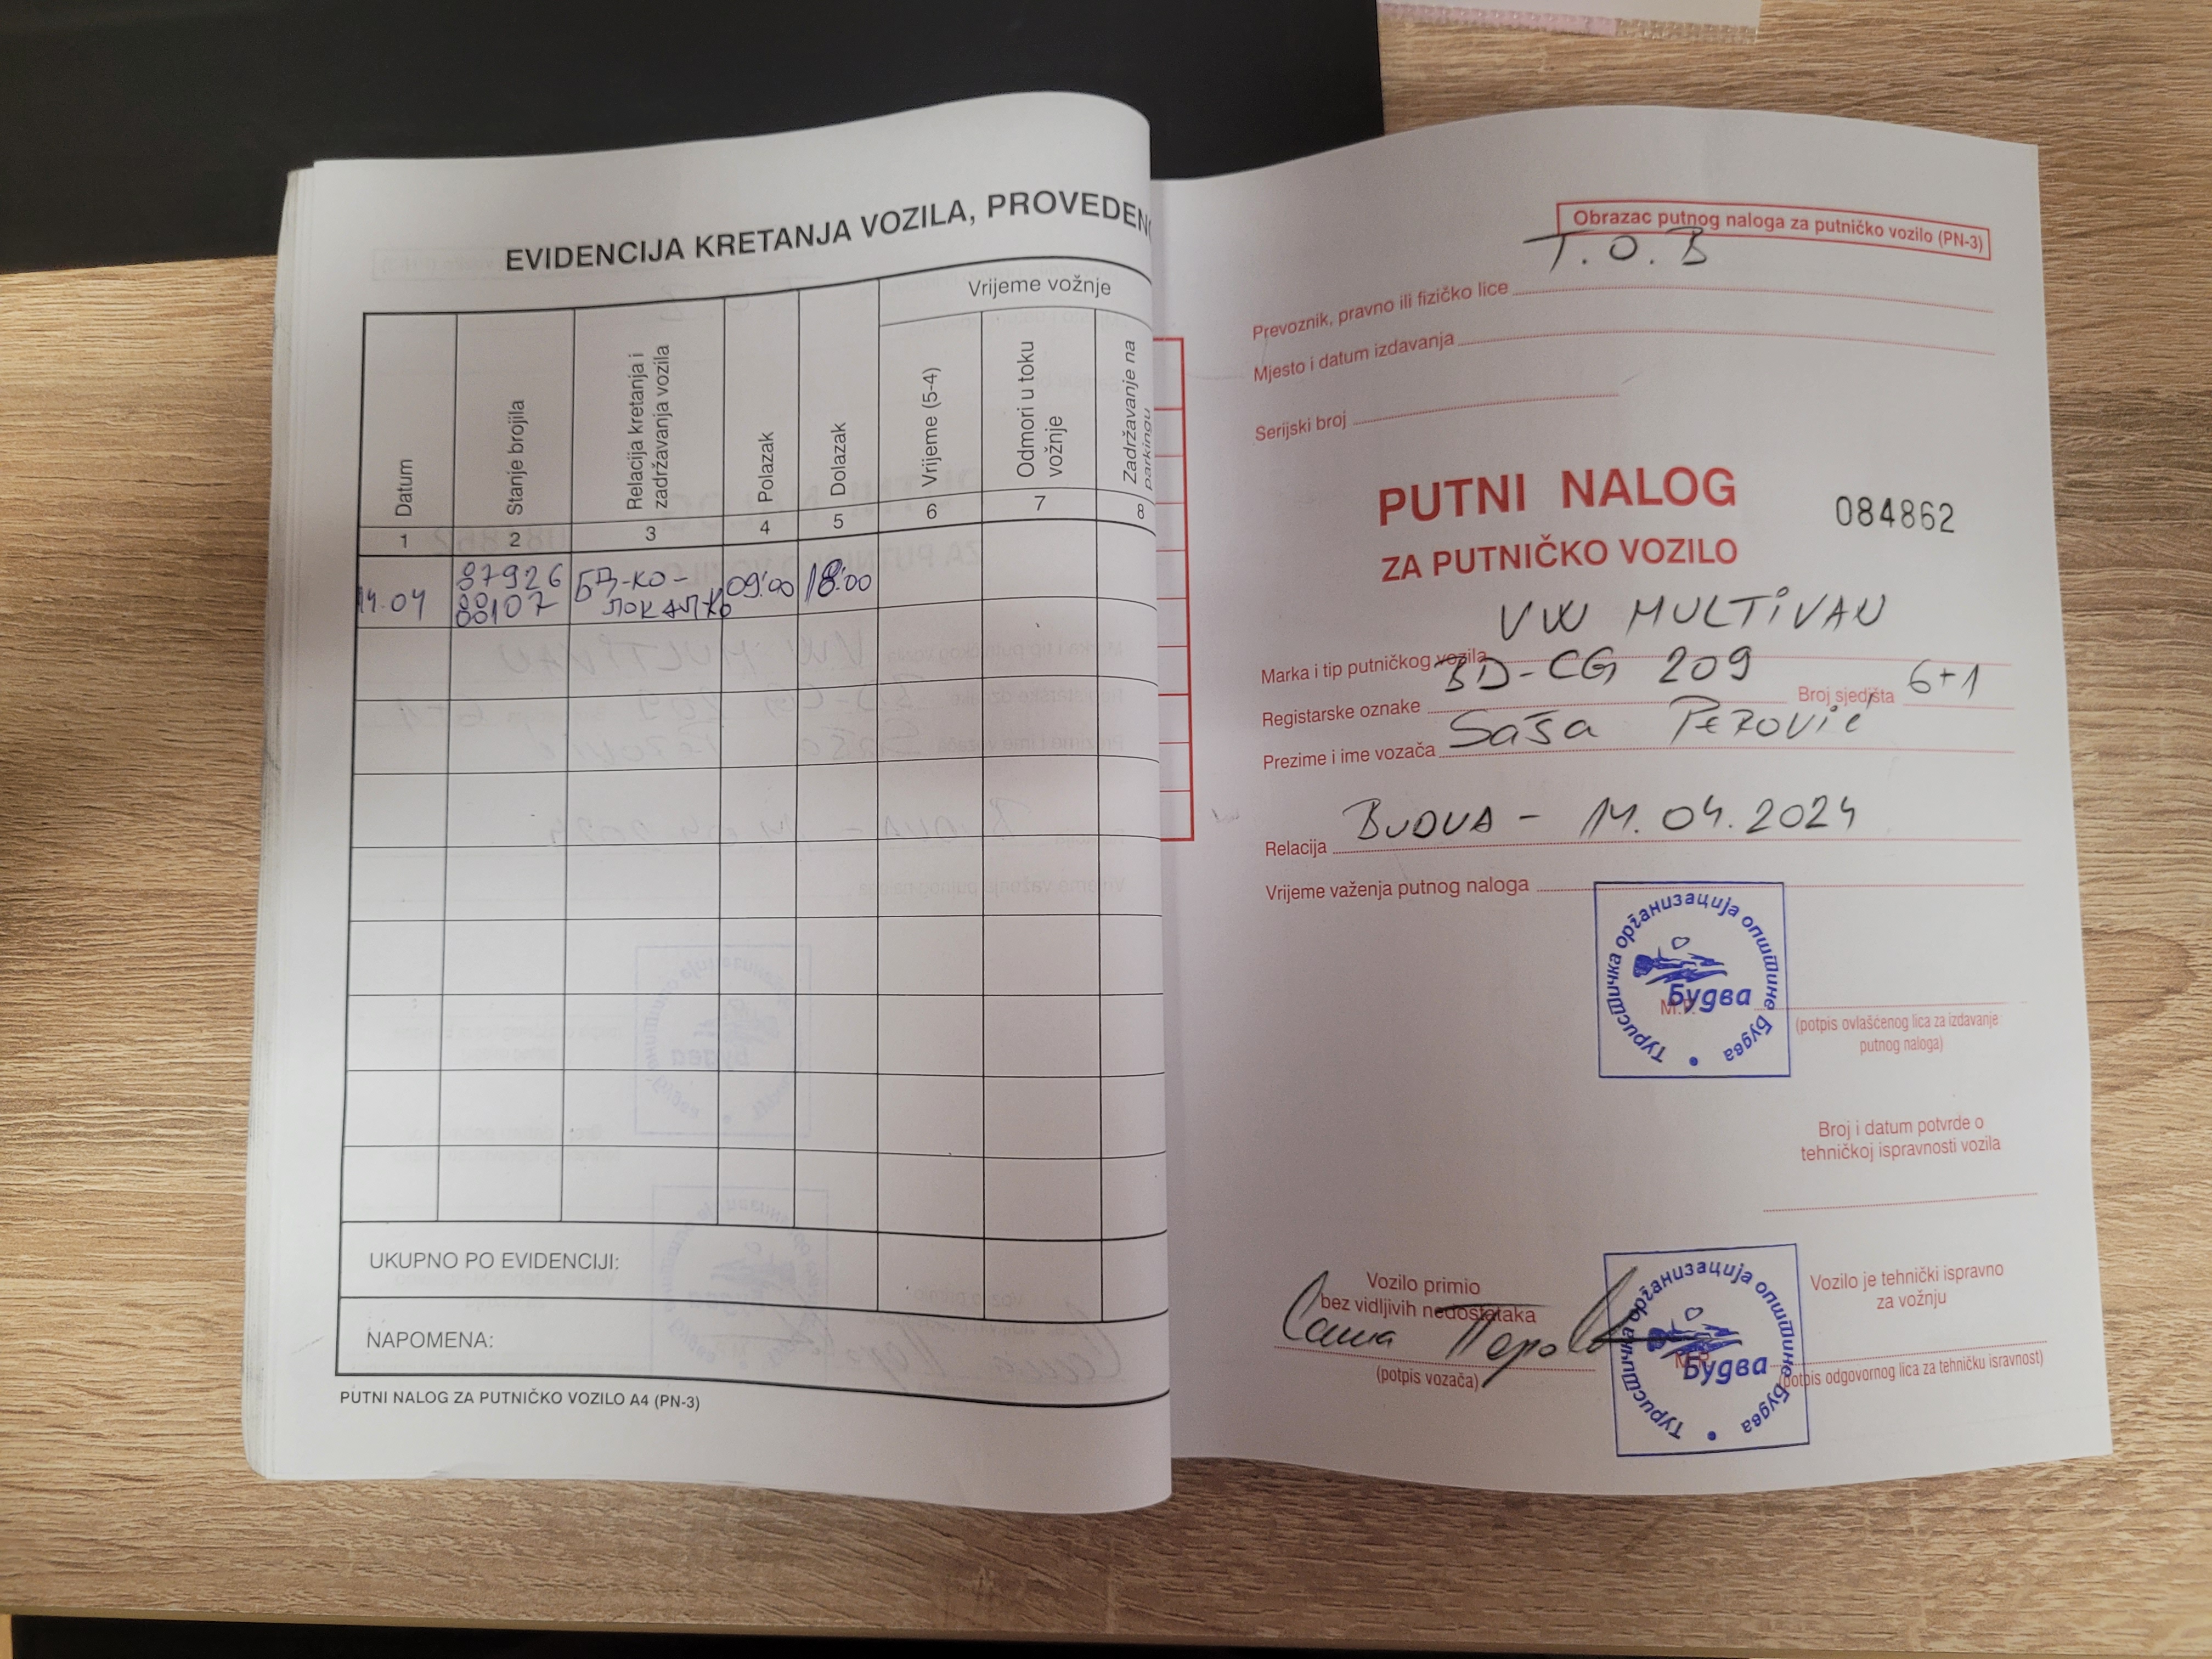 EVIDENCIJA KRETANJA VOZILA, PROVEDEN
Vrijeme vožnje
Datum
Stanje brojila
Relacija kretanja i
zadržavanja vozila
Polazak
Dolazak
Vrijeme (5-4)
Odmori u toku
vožnje
Zadržavanje na
parkingu
1 2 3 4 5 6 7 8
14.04 87926 БД-КО- 09:00 18:00
88107 ЛОКАЛКО
UKUPNO PO EVIDENCIJI:
NAPOMENA:
PUTNI NALOG ZA PUTNIČKO VOZILO A4 (PN-3)
Obrazac putnog naloga za putničko vozilo (PN-3)
Prevoznik, pravno ili fizičko lice T.O.B
Mjesto i datum izdavanja
Serijski broj
PUTNI NALOG
084862
ZA PUTNIČKO VOZILO
Marka i tip putničkog vozila VW MULTIVAN
Registarske oznake BD-CG 209 Broj sjedišta 6+1
Prezime i ime vozača Saša Perović
Relacija BUDVA - 14.04.2024
Vrijeme važenja putnog naloga
Туристичка организација општине Будва
Будва
M.P.
(potpis ovlašćenog lica za izdavanje
putnog naloga)
Broj i datum potvrde o
tehničkoj ispravnosti vozila
Vozilo primio
bez vidljivih nedostataka
Саша Перо
(potpis vozača)
Туристичка организација општине Будва
Будва
Vozilo je tehnički ispravno
za vožnju
(potpis odgovornog lica za tehničku isravnost)